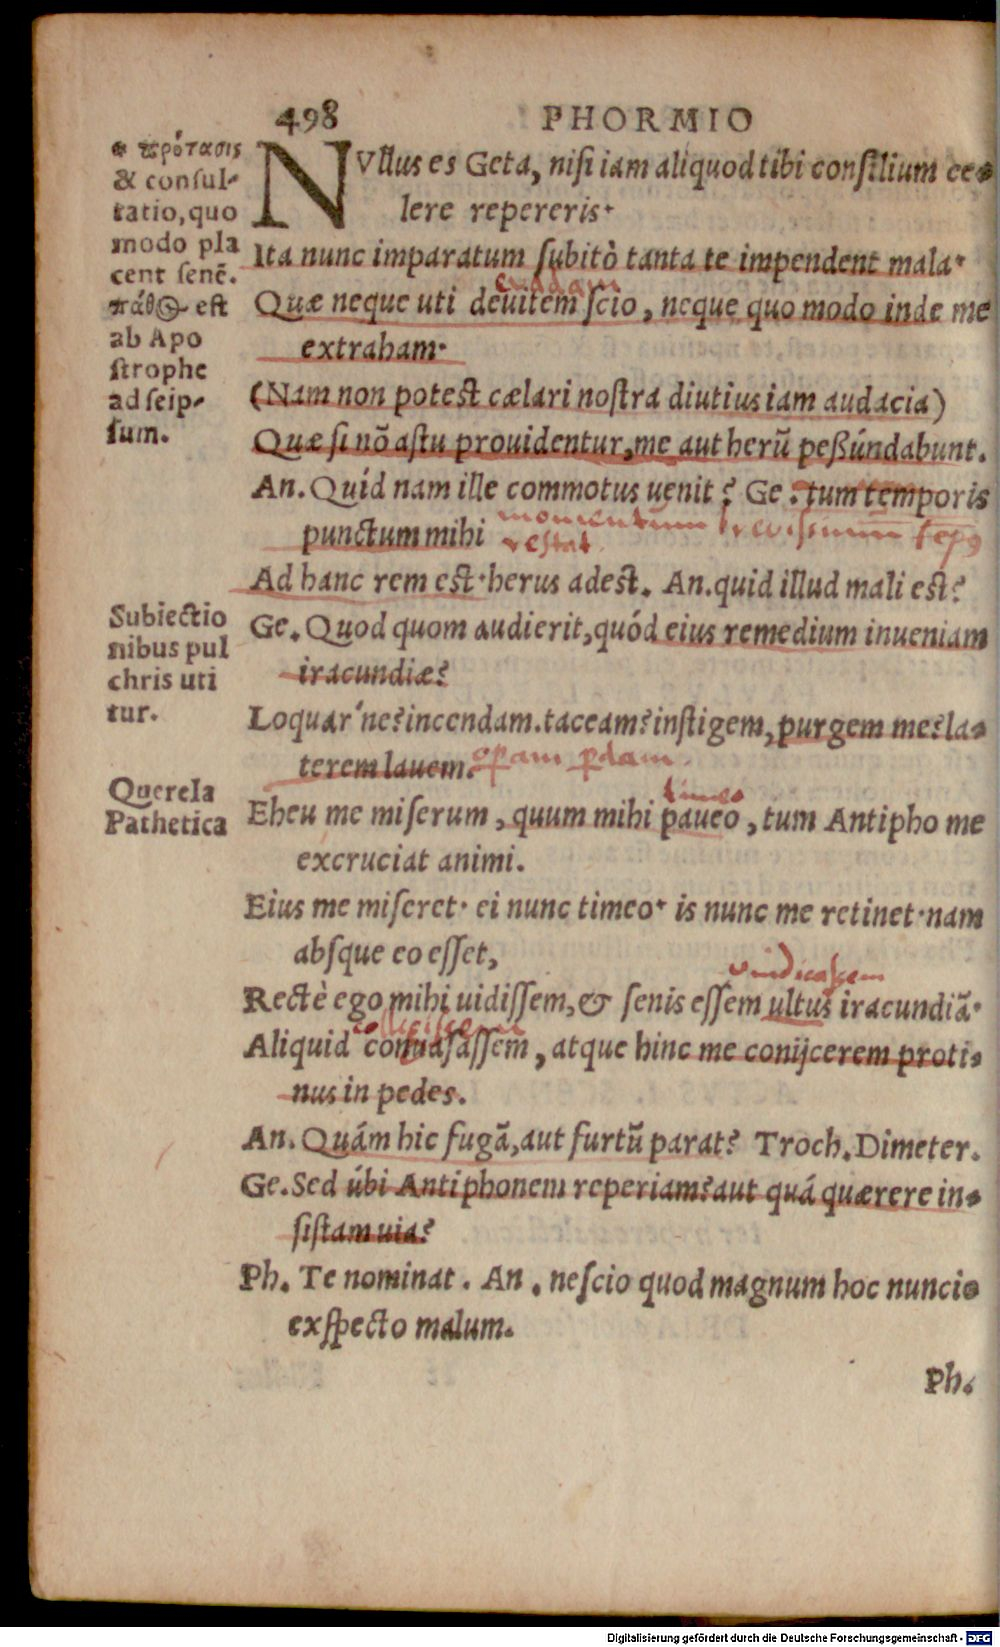 498 PHORMIO
* πρότασις
& consul-
tatio, quo
modo pla
cent senē.
πάθος est
ab Apo
strophe
ad seip-
sum.
NVllus es Geta, nisi iam aliquod tibi consilium ce-
lere repereris.
Ita nunc imparatum subitò tanta te impendent mala.
euadam
Quæ neque uti deuitem scio, neque quo modo inde me
extraham.
(Nam non potest cælari nostra diutius iam audacia)
Quæ si nō astu prouidentur, me aut herū peßúndabunt.
An. Quid nam ille commotus uenit? Ge. tum temporis
punctum mihi momentum breuissimum
restat
Ad hanc rem est. herus adest. An. quid illud mali est?
Subiectio
nibus pul
chris uti
tur.
Ge. Quod quom audierit, quód eius remedium inueniam
iracundiæ?
Loquar'ne? incendam. taceam? instigem, purgem me? la-
terem lauem. operam perdam
Querela
Pathetica
timeo
Eheu me miserum, quum mihi paueo, tum Antipho me
excruciat animi.
Eius me miseret. ei nunc timeo. is nunc me retinet. nam
absque eo esset,
vindicassem
Rectè ego mihi uidissem, & senis essem ultus iracundiā.
Aliquid conuasassem, atque hinc me conijcerem proti-
nus in pedes.
An. Quám hic fugā, aut furtū parat? Troch. Dimeter.
Ge. Sed úbi Antiphonem reperiam? aut quá quærere in-
sistam uia?
Ph. Te nominat. An. nescio quod magnum hoc nuncio
exspecto malum.
Ph.
Digitalisierung gefördert durch die Deutsche Forschungsgemeinschaft - DFG